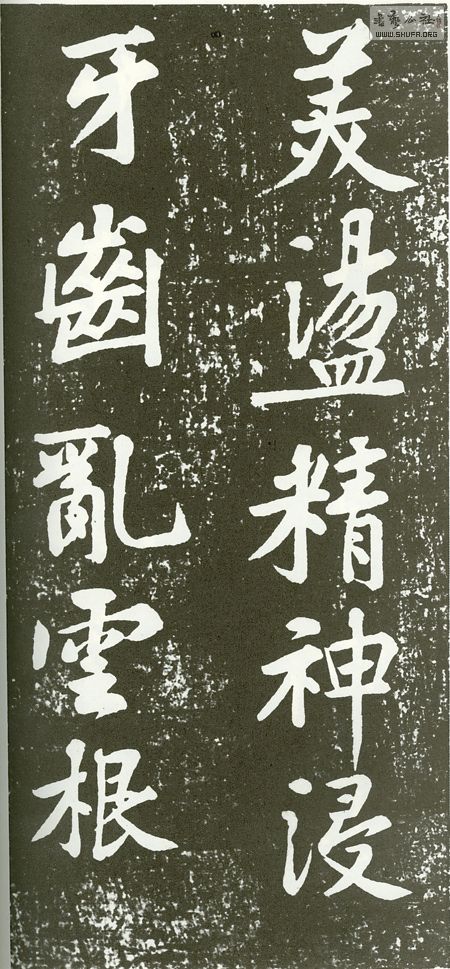 美盪精神浸
牙齒亂雲根
書法公社
WWW.SHUFA.ORG